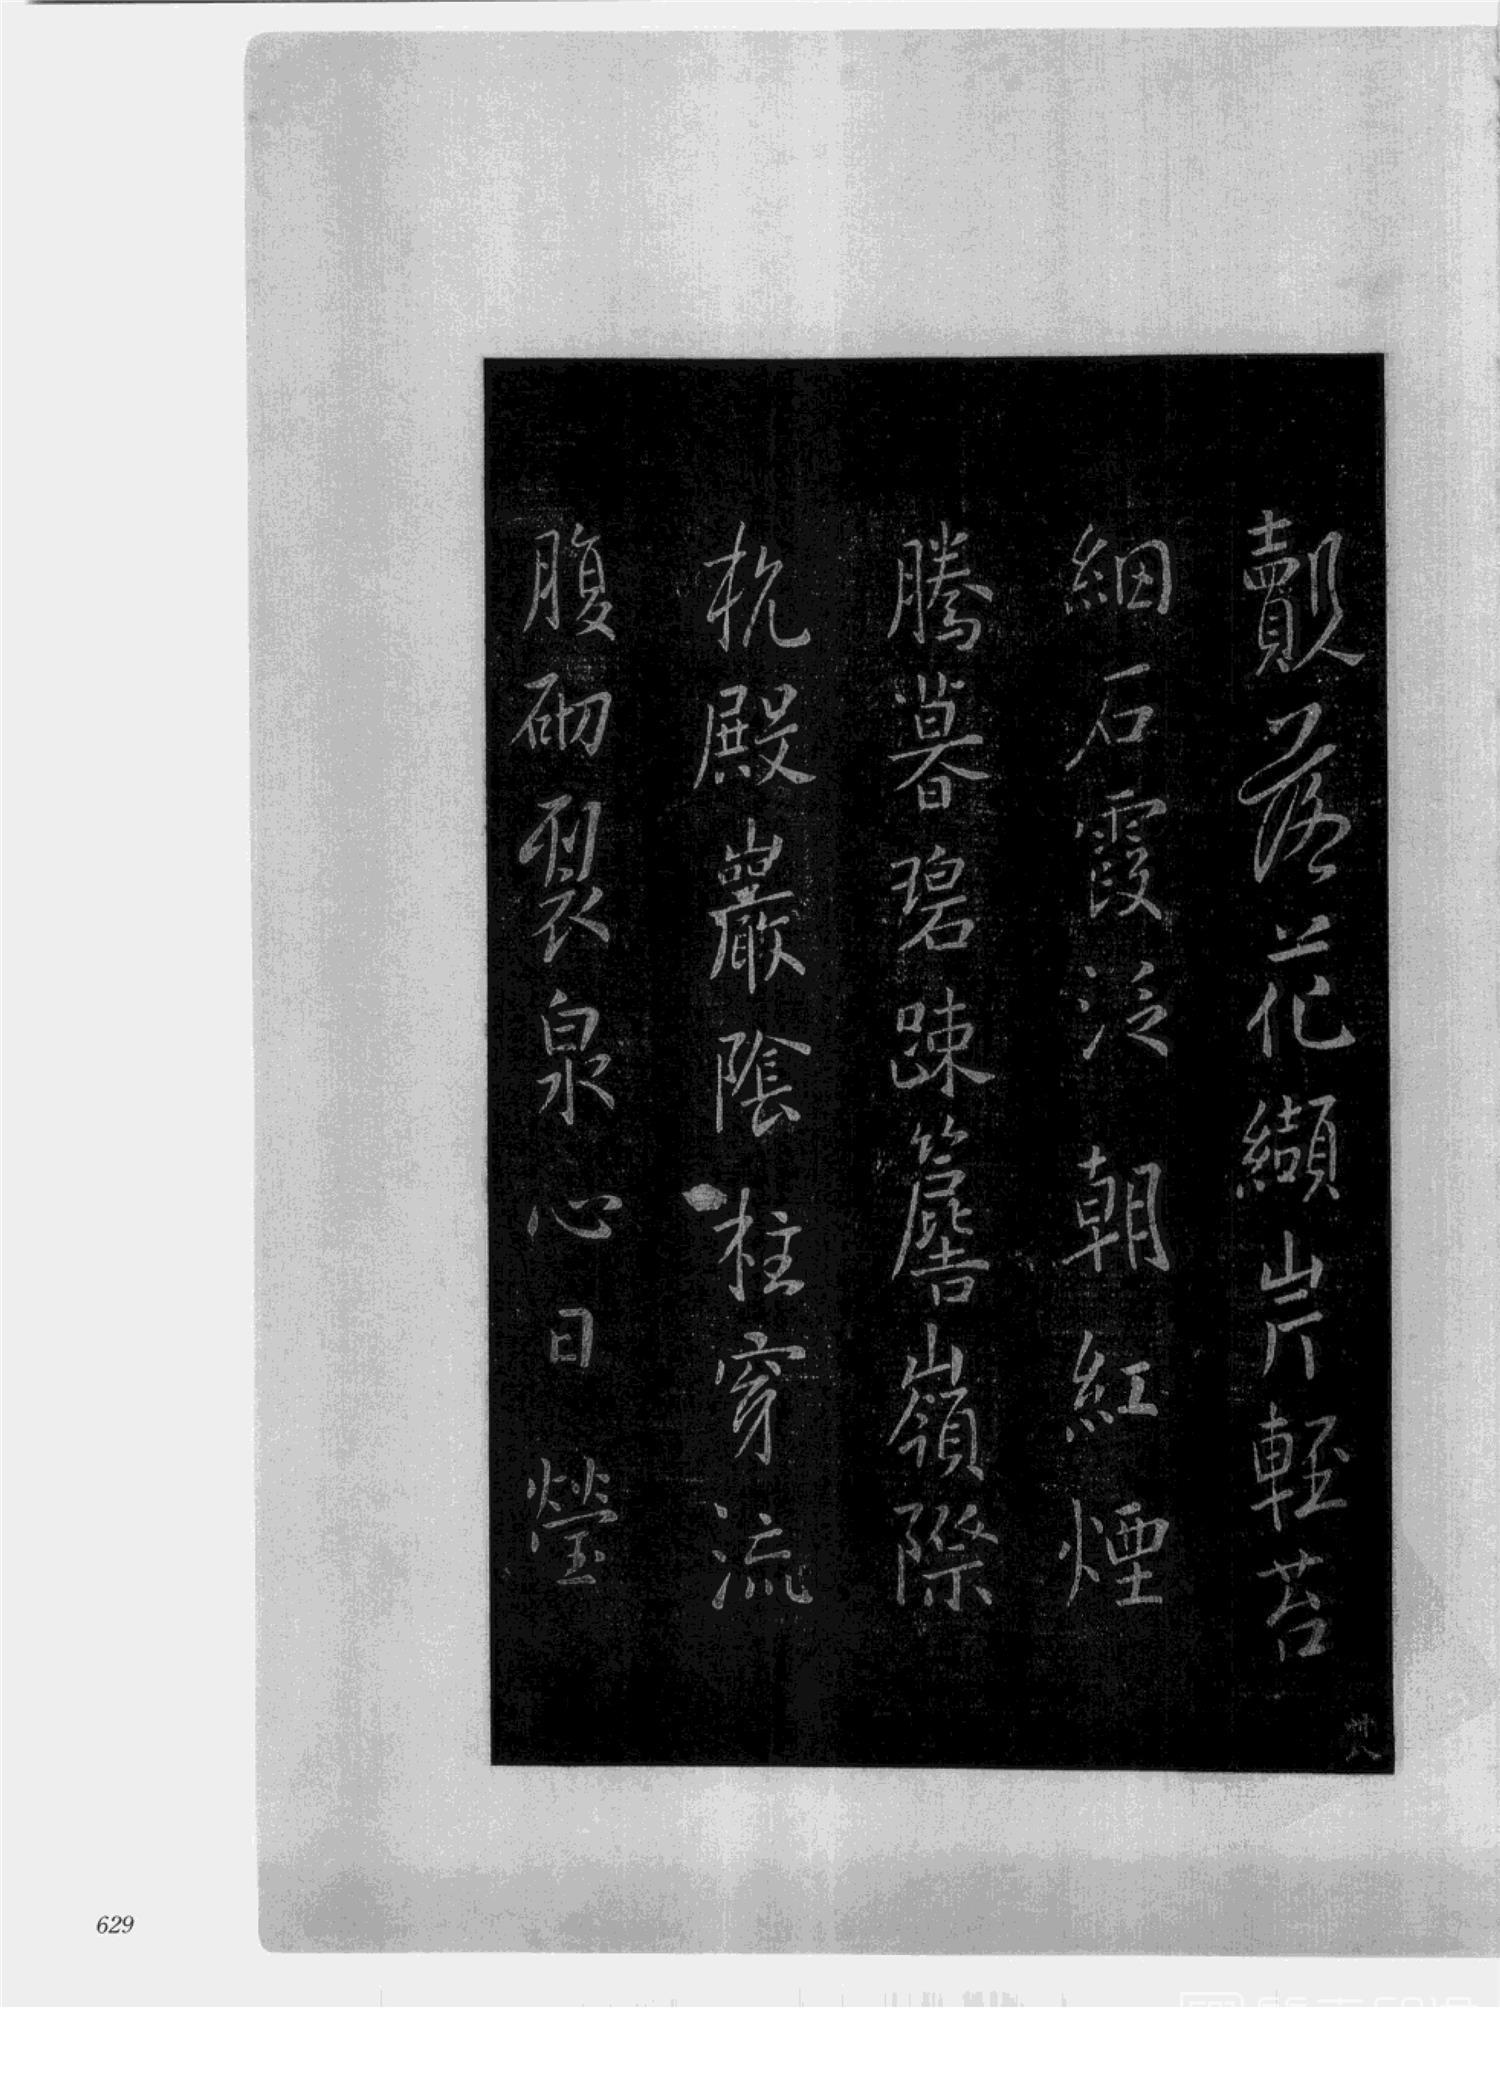 覿落花纈岸輕苔
細石霞泛朝紅煙
騰暮碧疎簷嶺際
杭殿巖陰柱穿流
腹砌裂泉心日瑩
卌八
629